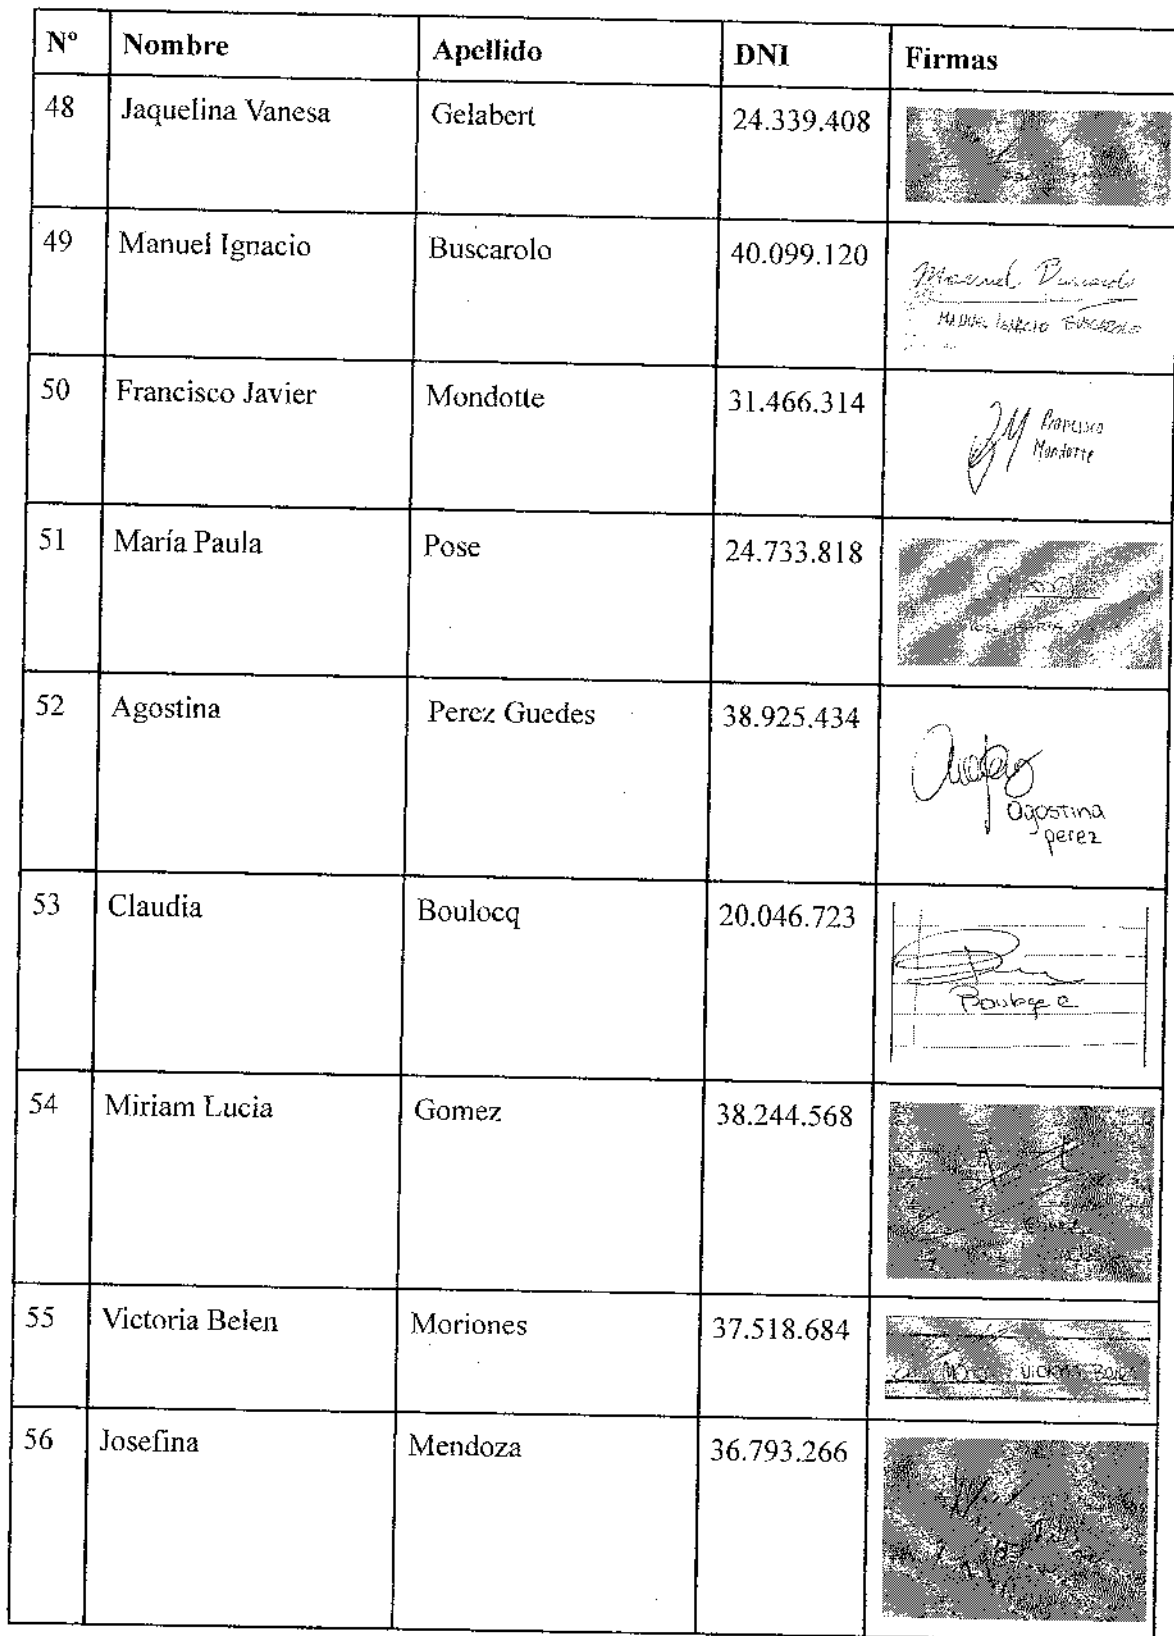 Nº Nombre Apellido DNI Firmas
48 Jaquelina Vanesa Gelabert 24.339.408
49 Manuel Ignacio Buscarolo 40.099.120
Manuel Buscarolo
MANUEL IGNACIO BUSCAROLO
50 Francisco Javier Mondotte 31.466.314
Francisco
Mondotte
51 María Paula Pose 24.733.818
52 Agostina Perez Guedes 38.925.434
agostina
perez
53 Claudia Boulocq 20.046.723
Boulocq C
54 Miriam Lucia Gomez 38.244.568
55 Victoria Belen Moriones 37.518.684
56 Josefina Mendoza 36.793.266